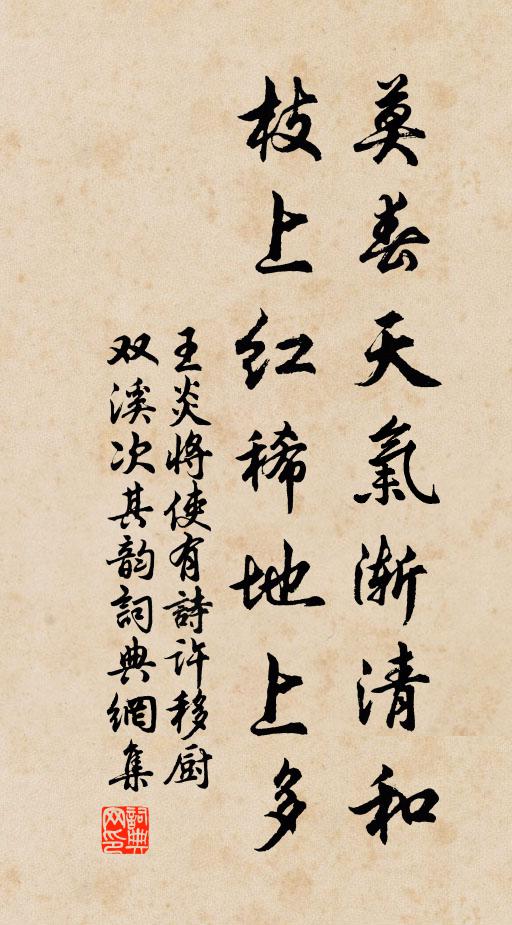 莫春天氣漸清和
枝上红稀地上多
王炎将使有詩許移厨
双溪次其韵詞典網集
詞典网印